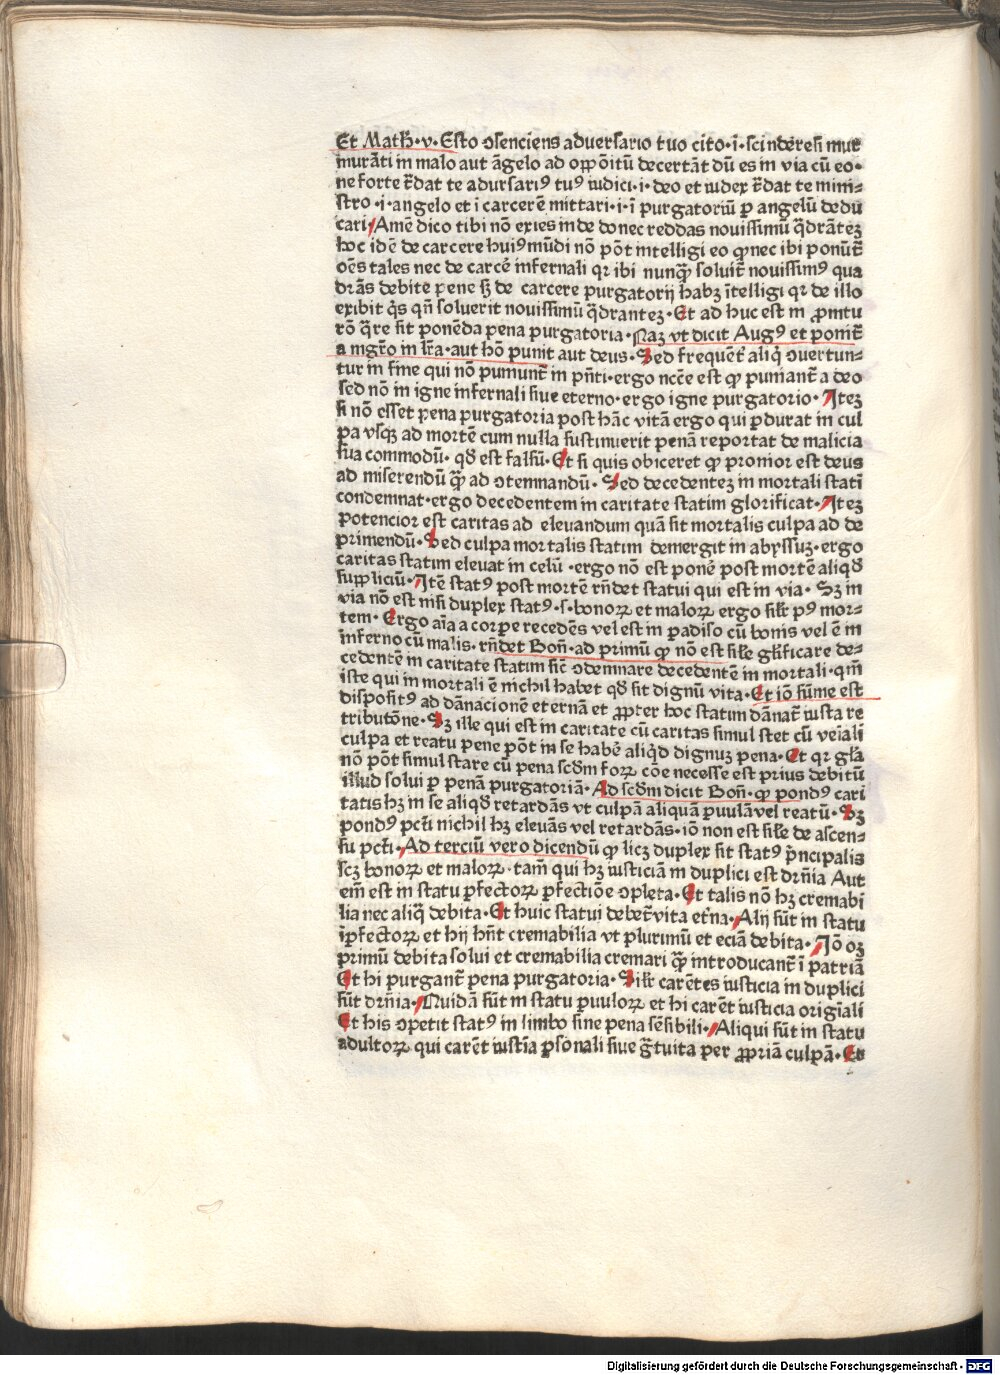 Et Math̄·v·Esto ꝯsenciens aduersario tuo cito·i·scinderesi mur
murāti in malo aut āgelo ad opp̄oītū decertāt dū es in via cū eo·
ne forte t̄dat te adursariꝰ tuꝰ iudici·i·deo et iudex t̄dat te mini-
stro·i·angelo et ī carcerē mittari·i·ī purgatoriū ꝑ angelū dedu
cari/Amē dico tibi nō exies inde donec reddas nouissimū q̄drāteꝫ
hoc idē de carcere huiꝰ mūdi nō pōt intelligi eo ꝙ nec ibi ponūt᷑
oēs tales nec de carcē infernali qꝛ ibi nunqꝫ soluit᷑ nouissimꝰ qua
drās debite pene sꝫ de carcere purgatorij habꝫ ītelligi qꝛ de illo
exibit q̄s qn̄ soluerit nouissimū q̄dranteꝫ·Et ad huc est in ꝓmtu
rō q̄re sit ponēda pena purgatoria·Naꝫ vt dicit Augꝰ et ponit᷑
a mgr̄o in lr̄a·aut hō punit aut deus·Sed frequent᷑ aliq̄ ꝯuertun-
tur in fine qui nō puniunt᷑ in pn̄ti·ergo nccē est ꝙ puniant᷑ a deo
sed nō in igne infernali siue eterno·ergo igne purgatorio·Iteꝫ
si nō esset pena purgatoria post hāc vitā ergo qui ꝑdurat in cul
pa vsqꝫ ad mortē cum nulla sustinuerit penā reportat de malicia
sua commodū·qđ est falsū·Et si quis obiceret ꝙ pronior est deus
ad miserendū qꝫ ad ꝯtemnandū·Sed decedenteꝫ in mortali statī
condemnat·ergo decedentem in caritate statim glorificat·Iteꝫ
potencior est caritas ad eleuandum quā sit mortalis culpa ad de
primendū·Sed culpa mortalis statim demergit in abyssuꝫ·ergo
caritas statim eleuat in celū·ergo nō est ponē post mortē aliqđ
supp̱liciū·Itē statꝰ post mortē rn̄det statui qui est in via·Sꝫ in
via nō est nisi duplex statꝰ·s·bonoꝝ et maloꝝ ergo silr̄ pꝰ mor-
tem·Ergo aīa a corpe recedēs vel est in padiso cū bonis vel ē in
īnferno cū malis·rn̄det Boñ·ad primū ꝙ nō est sile gl̄ificare de-
cedentē in caritate statim sic̄ ꝯdemnare decedentē in mortali·qm̄
iste qui in mortali ē nichil habet qđ sit dignū vita·Et iō sūme est
dispositꝰ ad dānacionē eternā et ꝓpter hoc statim dānat᷑ iusta re
tributōne·Sꝫ ille qui est in caritate cū caritas simul stet cū venīali
culpa et reatu pene pōt in se habē aliqđ dignuꝫ pena·Et qꝛ gl̄a
nō pōt simul stare cū pena scd̄m foꝝ cōe necesse est prius debitū
illud solui ꝑ penā purgatoriā·Ad scd̄m dicit Boñ·ꝙ pondꝰ cari
tatis hꝫ in se aliqđ retardās vt culpā aliquā ꝑuulā vel reatū·Sꝫ
pondꝰ pcti nichil hꝫ eleuās vel retardās·iō non est sile de ascen-
su pcti·Ad terciū vero dicendū ꝙ licꝫ duplex sit statꝰ p̄ncipalis
scꝫ bonoꝝ et maloꝝ·tam̄ qui hꝫ iusticiā in duplici est drn̄ia Aut
em̄ est in statu ꝑfectoꝝ ꝑfectiōe ꝯpleta·Et talis nō hꝫ cremabi
lia nec aliq̄ debita·Et huic statui debet᷑ vita et̄na·Alij sūt in statu
īꝑfectoꝝ et hij hn̄t cremabilia vt plurimū et eciā debita·Iō oꝫ
primū debita solui et cremabilia cremari qꝫ introducant᷑ ī patriā
Et hi purgant᷑ pena purgatoria·Silr̄ carētes iusticia in duplici
sūt drn̄ia·Quidā sūt in statu puuloꝝ et hi carēt iusticia origīali
Et his ꝯpetit statꝰ in limbo sine pena sēsibili·Aliqui sūt in statu
adultoꝝ qui carēt iustīa ꝑsonali siue ḡtuita per ꝓpriā culpā·Et
Digitalisierung gefördert durch die Deutsche Forschungsgemeinschaft · DFG